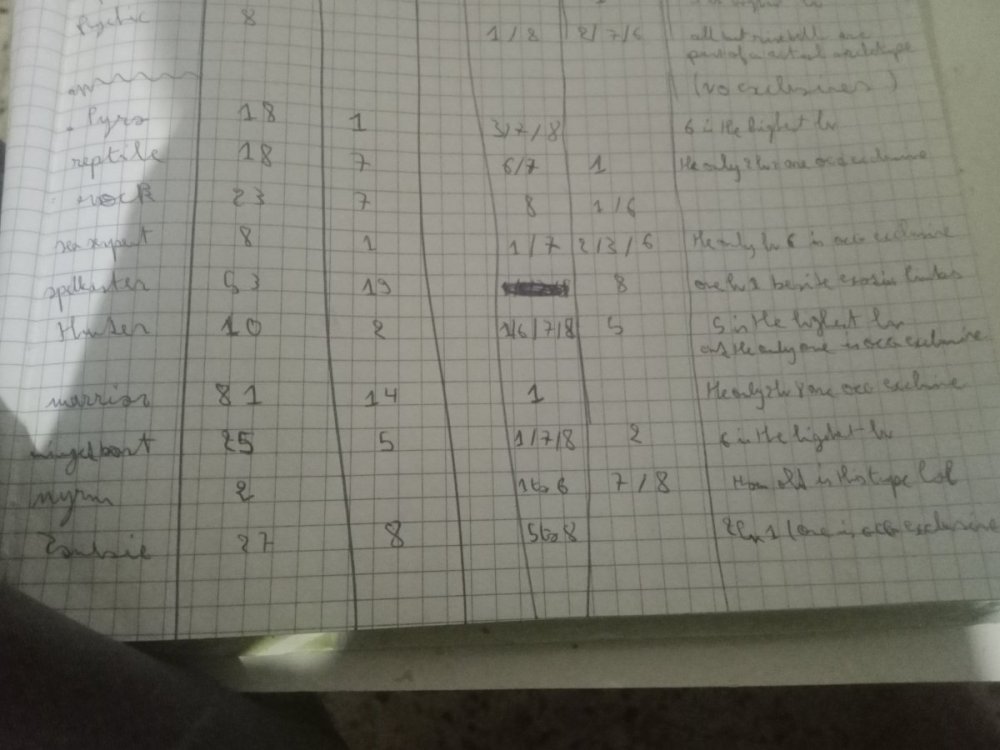 Psychic 8 1/8 2/7/6 all but are
part of a actual archetype
(no exclusives)
Pyro 18 1 3/7/8 6 is the highest lv
reptile 18 7 6/7 1 the only 2 lv 1 are ocg exclusive
rock 23 7 8 1/6
sea serpent 8 1 1/7 2/3/6 the only lv 6 is ocg exclusive
spellcaster 53 19 8 one lv 2 beside
Thunder 10 2 1/6/7/8 5 5 is the highest lv
and the only one is ocg exclusive
warrior 81 14 1 the only 2 lv 1 are ocg exclusive
wingedbeast 25 5 1/7/8 2 6 is the highest lv
wyrm 2 1 to 6 7/8 How old is this type lol
Zombie 27 8 5 to 8 2 lv 1 (one is ocg exclusive